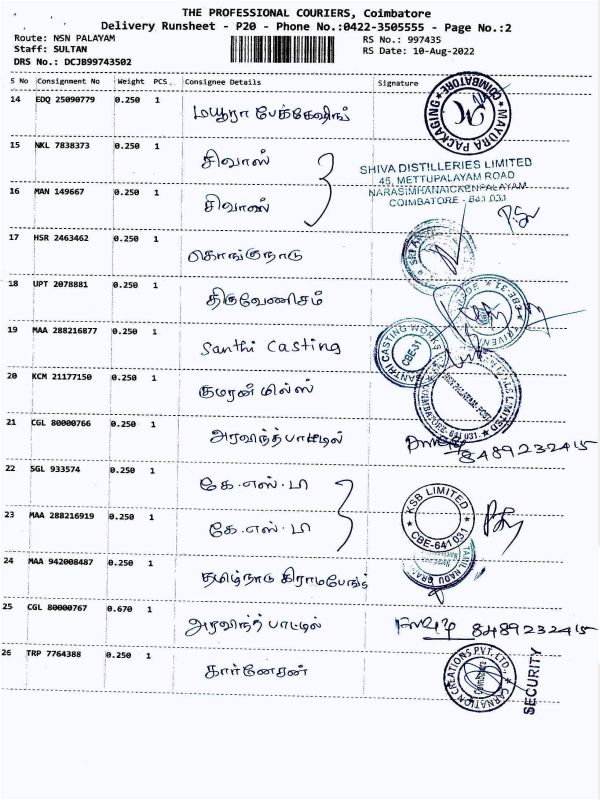 THE PROFESSIONAL COURIERS, Coimbatore
Delivery Runsheet - P20 - Phone No.:0422-3505555 - Page No.:2
Route: NSN PALAYAM RS No.: 997435
Staff: SULTAN RS Date: 10-Aug-2022
DRS No.: DCJB99743502
S No Consignment No Weight PCS. Consignee Details Signature
14 EDQ 25090779 0.250 1 மயூரா பேக்கேஜிங்
COIMBATORE MAYURA PACKAGING
15 NKL 7838373 0.250 1 சிவாஸ்
SHIVA DISTILLERIES LIMITED
45, METTUPALAYAM ROAD
NARASIMHANAICKENPALAYAM
COIMBATORE - 641 031
16 MAN 149667 0.250 1 சிவாஸ்
17 HSR 2463462 0.250 1 கொங்குநாடு
18 UPT 2078881 0.250 1 திருவேணிசம்
CBE-31
19 MAA 288216877 0.250 1 Santhi Casting
SANTHI CASTING WORKS CBE-31
20 KCM 21177150 0.250 1 குமரன் மில்ஸ்
21 CGL 80000766 0.250 1 அரவிந்த் பாட்டில் 8489232415
22 SGL 933574 0.250 1 கே.எஸ்.பி
KSB LIMITED CBE-641 031
23 MAA 288216919 0.250 1 கே.எஸ்.பி
24 MAA 942008487 0.250 1 தமிழ்நாடு கிராமபேங்க்
TAMIL NADU
25 CGL 80000767 0.670 1 அரவிந்த் பாட்டில் 8489232415
26 TRP 7764388 0.250 1 கார்னேசன்
CARNATION CREATIONS PVT. LTD., Coimbatore
SECURITY